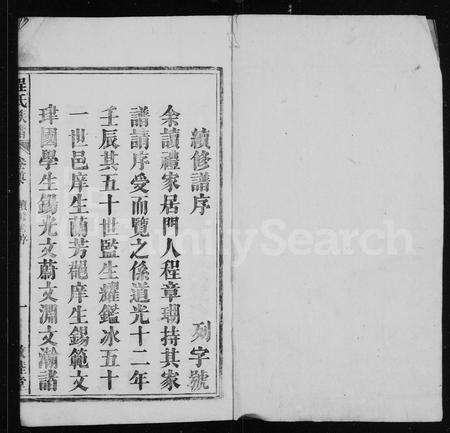 續修譜序 列字號
余讀禮家居門人程章瑚持其家
譜請序受而覽之係道光十二年
壬辰其五十世監生耀鑑冰五十
一世邑庠生蘭芳郡庠生錫範文
瑋國學生錫光文蔚文淵文瀚諸
程氏
一
FamilySearch